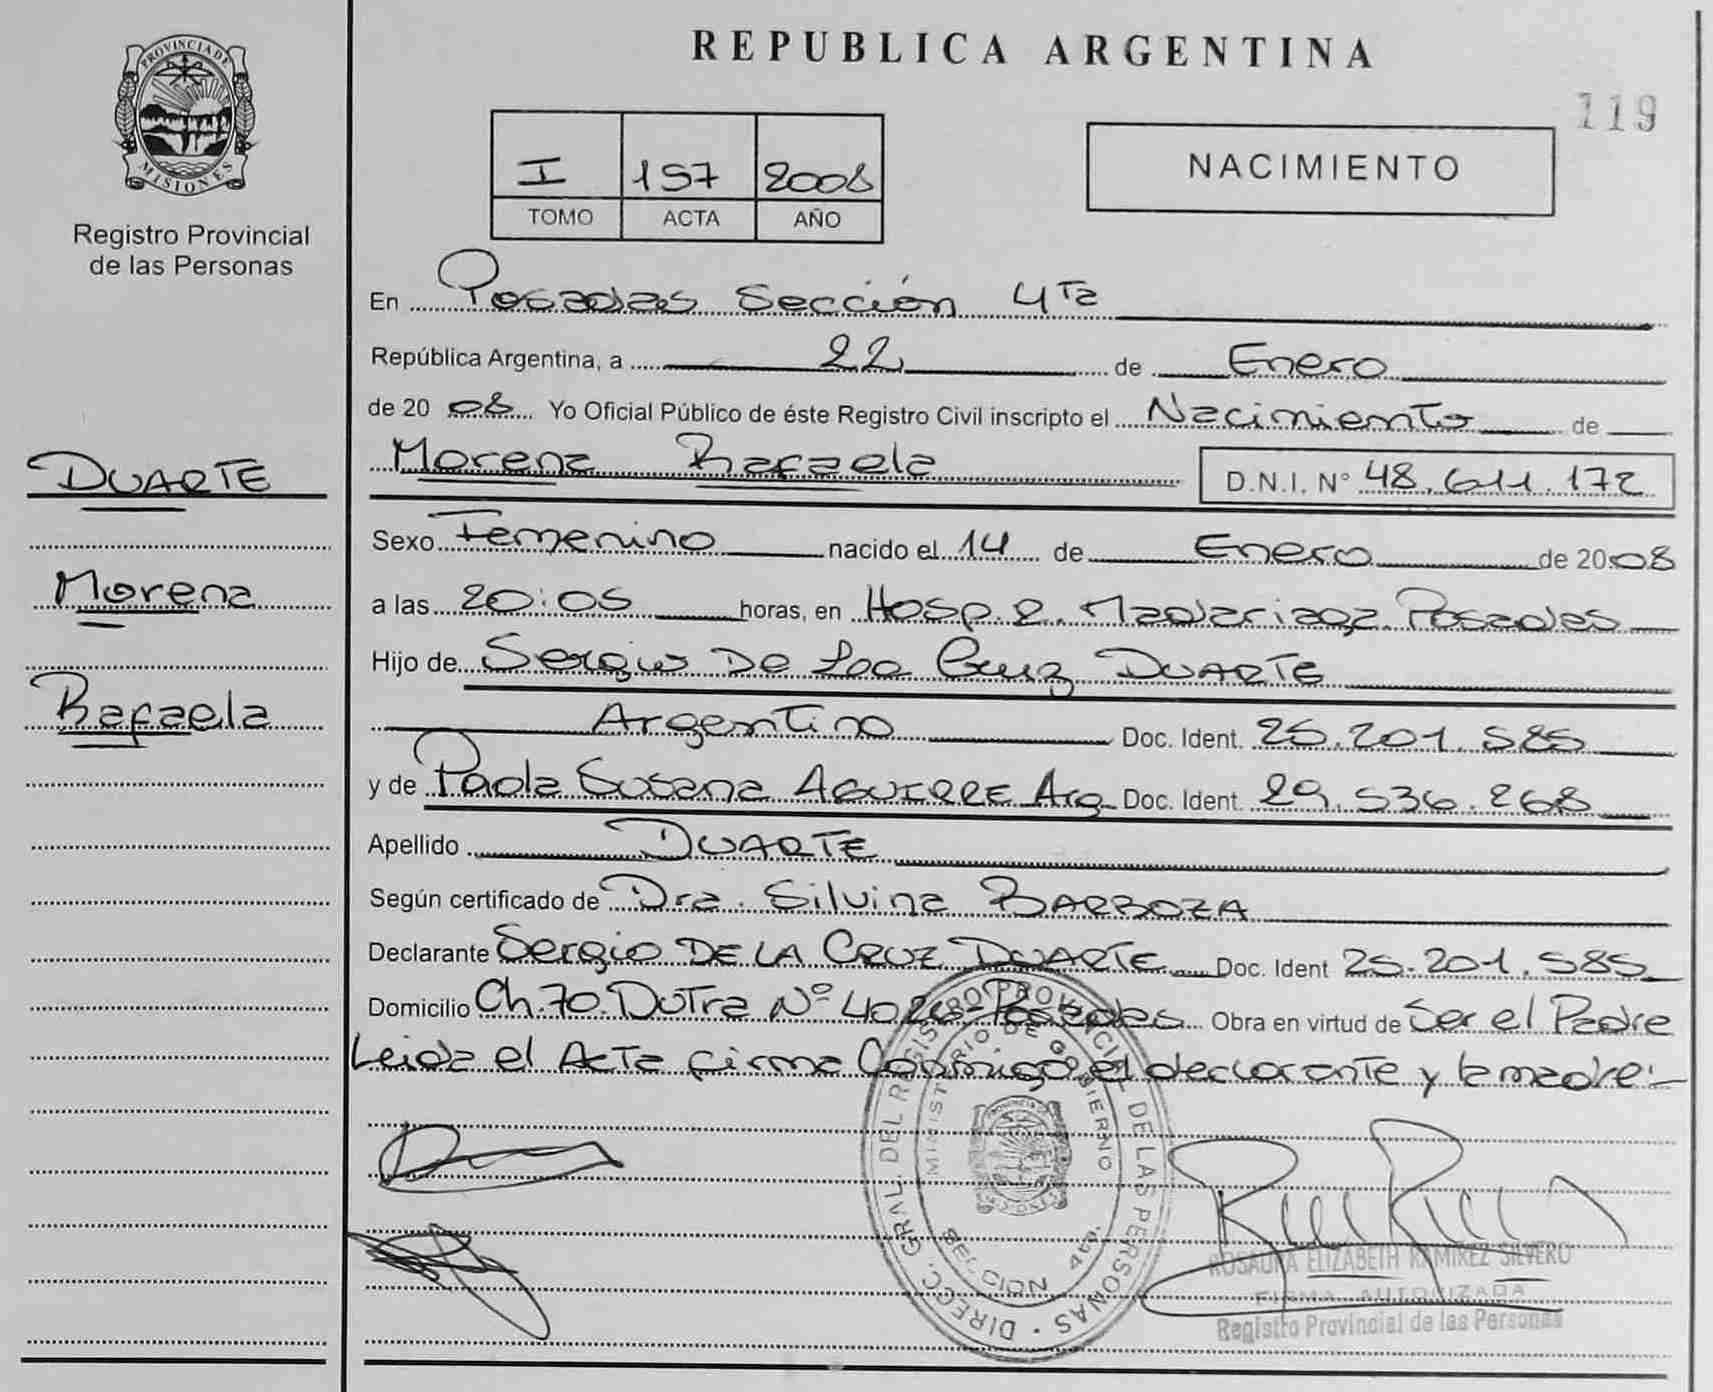 REPUBLICA ARGENTINA
119
PROVINCIA DE
MISIONES
Registro Provincial
de las Personas
I 157 2008
TOMO ACTA AÑO
NACIMIENTO
En Posadas Sección 4Ta
República Argentina, a 22 de Enero
de 20 08 Yo Oficial Público de éste Registro Civil inscripto el Nacimiento de
Morena Rafaela D.N.I. N° 48.611.172
Sexo Femenino nacido el 14 de Enero de 2008
a las 20:05 horas, en Hosp. R. Madariaga. Posadas
Hijo de Sergio De La Cruz DUARTE
Argentino Doc. Ident. 25.201.585
y de Paola Susana AGUIRRE Arg Doc. Ident. 29.536.268
Apellido DUARTE
Según certificado de Dra. Silvina BARBOZA
Declarante Sergio DE LA CRUZ DUARTE Doc. Ident 25.201.585
Domicilio Ch. 70. Dutra N° Posadas Obra en virtud de Ser el Padre
Leida el Acta firma Conmigo el declarante y la madre:-
DUARTE
Morena
Rafaela
DIRECC. GRAL. DEL REGISTRO PROVINCIAL DE LAS PERSONAS
MINISTERIO DE GOBIERNO
ROSAURA ELIZABETH RAMIREZ SILVERO
FIRMA AUTORIZADA
Registro Provincial de las Personas